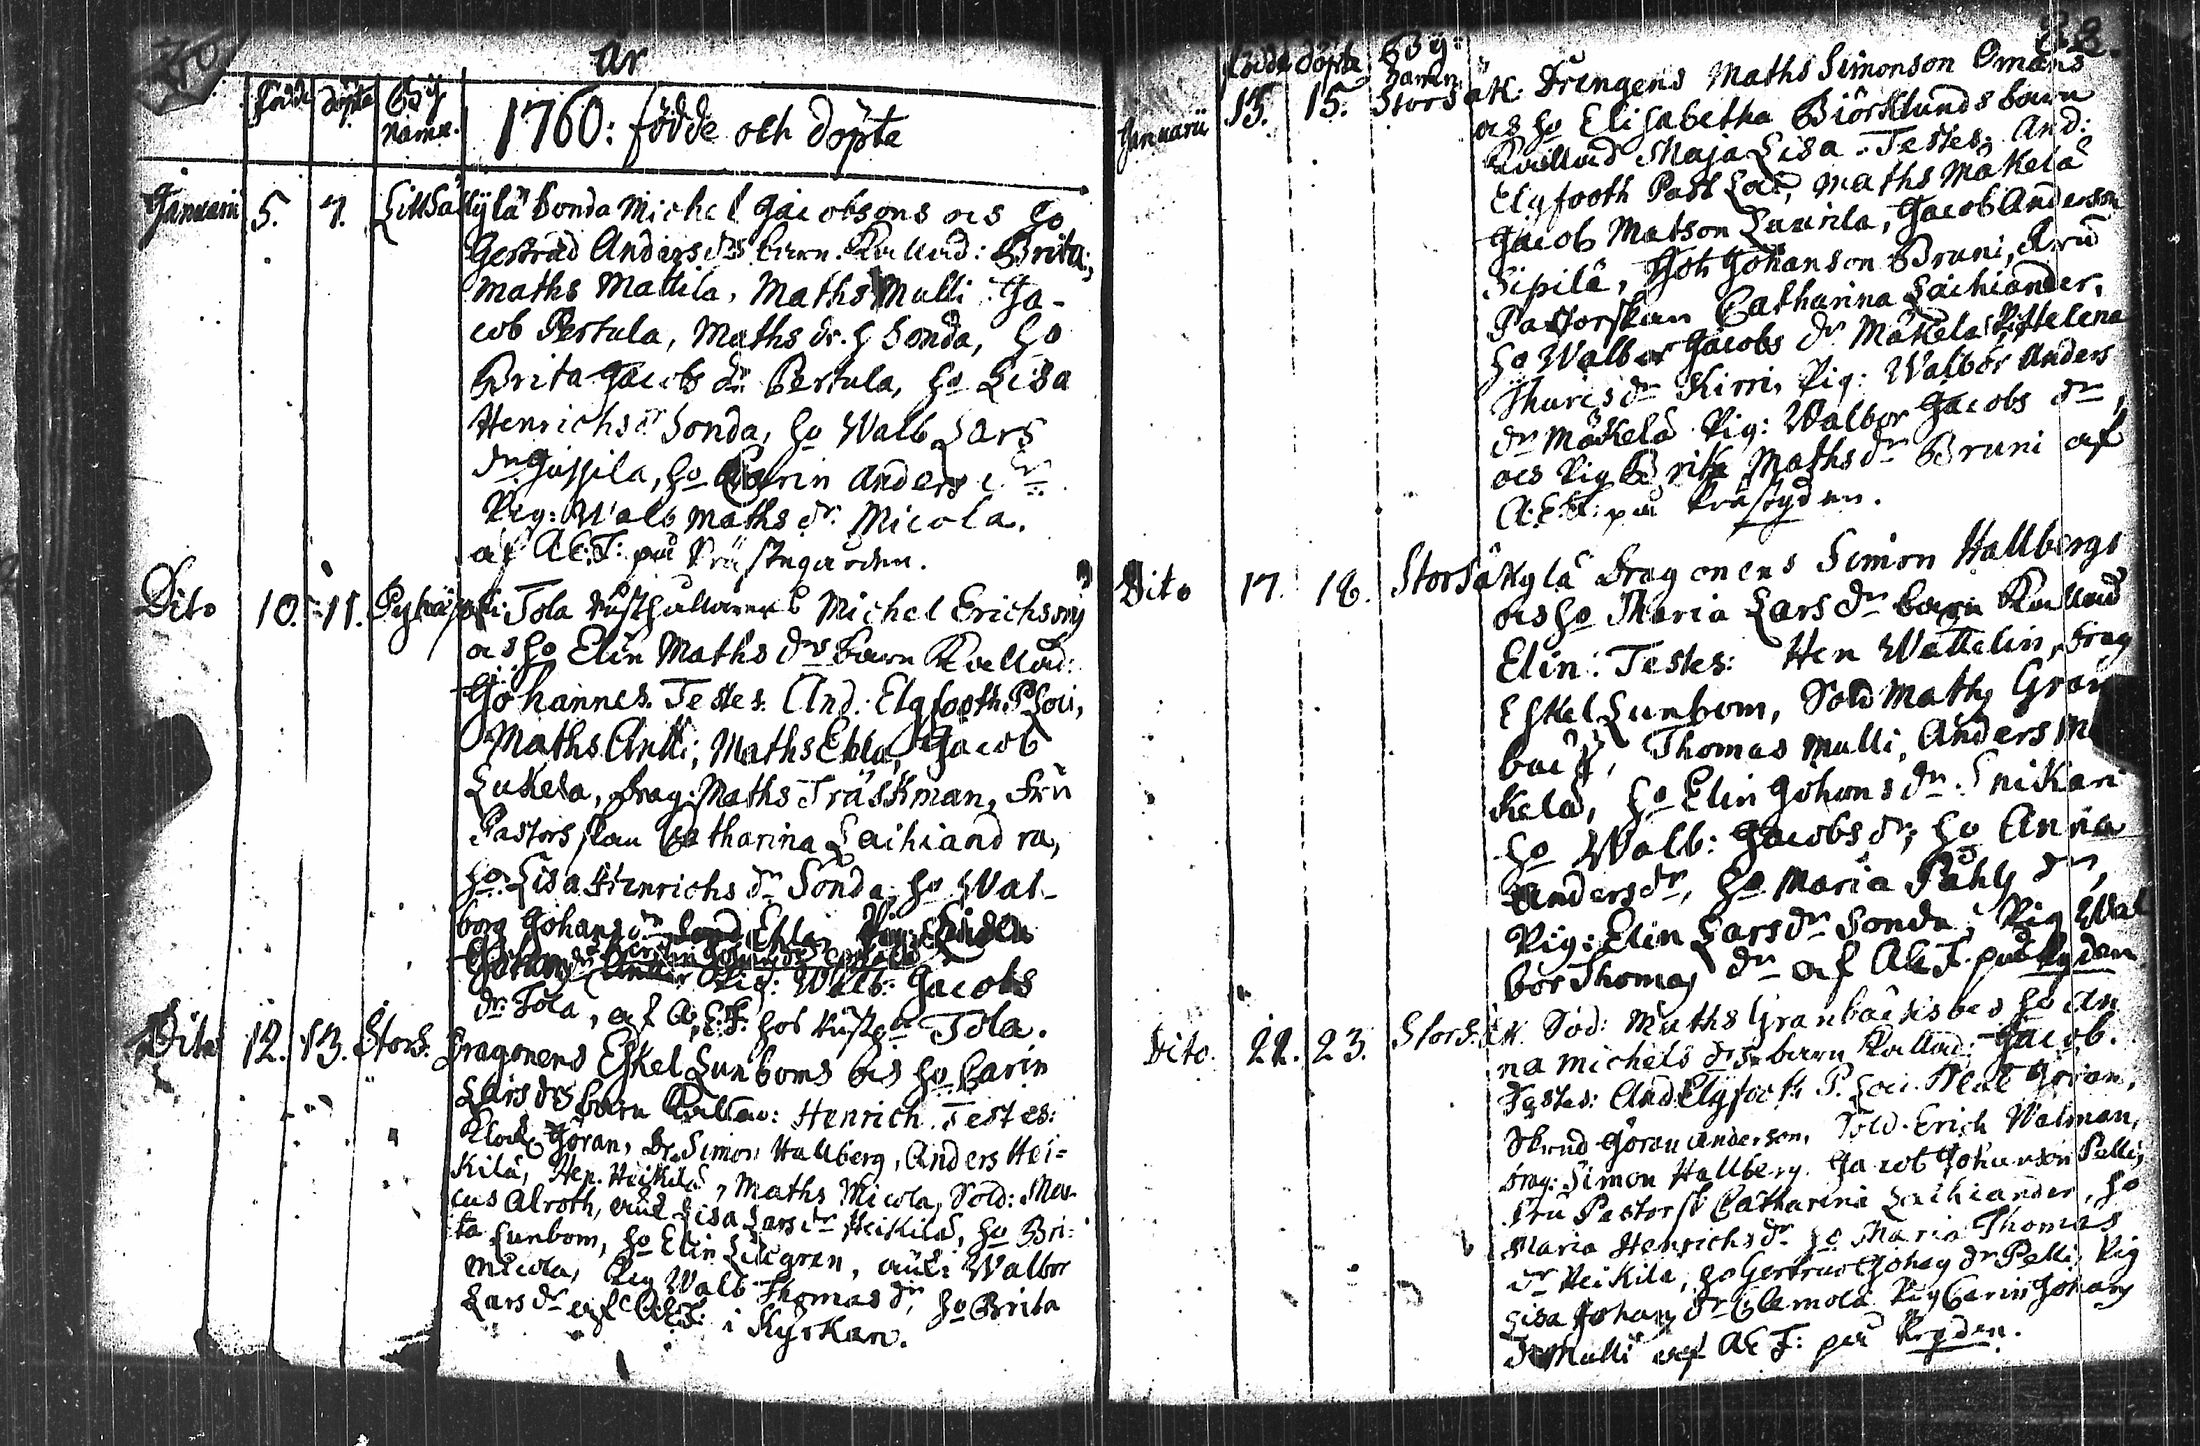 År
Född döpte By namn. 1760: födde och döpte
Januarii 5. 7. Lillsäkylä bonda Michel Jacobsons ocs ho
Gertrud Anders drs barn Kallad: Brita;
Maths Mattila, Maths Mulli Ja-
cob Pertula, Maths dr. h Sonda, ho
Brita Jacobs dr Pertula, ho Lisa
Henrichs dr Sonda, ho Walb Lars
dr Jussila, ho Carin Anders dr
Pig: Walb Maths dr. Micola.
af A.E.F: på Prästegården.
Dito 10. 11. Pyhäjoki: Tola Rusthållarens Michel Erichsons
ocs ho Elin Maths drs barn Kallad:
Johannes. Testes: And: Elgfooth P Loci,
Maths Antti, Maths Ebla, Jacob
Lukela, Drag: Maths Träskman, Fru
Pastorskan Catharina Laihiandra,
ho: Lisa Henrichs dr Sonda, ho Wal-
borg Johans dr Ebla,
Johans dr Pig: Walb: Jacobs
dr. Tola, af A.E.F. hos Rustg Tola.
Dito 12. 13. Stors. Dragonens Eskel Lunboms ocs ho Carin
Lars drs barn Kallad: Henrich. Testes:
Klock Jöran, Dr. Simon Hallberg, Anders Hei-
kilä, Hen. Heikilä, Maths Micola, Sold: Mar-
cus Alroth, Lisa Lars dr Heikilä, ho Bri-
ta Lunbom, ho Elin Liljegren, Walbor
Micola, Pig Walb Thomas dr, ho Brita
Lars dr af A.E.F: i Kyrkan.
Födde döpte By namn
Januarii 13. 15. Storsäk. Drengens Maths Simonson Omans
ocs ho Elisabetha Biörklunds barn
Kallad Maja Lisa. Testes; And:
Elgfooth Past Loci, Maths Mäkelä
Jacob Matson Laurila, Jacob Anderson
Sipilä, Joh Johanson Bruni, Fru
Pastorskan Catharina Laihiander,
ho Walbor Jacobs dr Mäkelä, Helena
Thuris dr Kirri, Pig: Walbor Anders
dr Mäkelä Pig: Walbor Jacobs dr,
ocs Pig Brita Maths dr Bruni af
A.E.F: på
Dito 17. 18. Storsäkylä Dragonens Simon Hallbergs
ocs ho Maria Lars dr barn Kallad
Elin: Testes: Hen Wettelin, Drag
Eskel Lunbom, Sold Maths Gran
back, Thomas Mulli, Anders M
kelä, ho Elin Johans dr Snikari
ho Walb: Jacobs dr, ho Anna
Anders dr, ho Maria Påhls dr,
Pig: Elin Lars dr Sonda, Pig Wal
bor Thomas dr af A.E.F. på
Dito. 22. 23. Storsäk. Sod: Maths Granbäckis ocs ho An
na Michels drs barn Kallad: Jacob.
Testes: And Elgfoot P. Loci. Klock Jöran,
Göran Anderson, Sold. Erich Walman,
Drag: Simon Hallberg. Jacob Johanson Pelli,
Fru Pastorsk Catharina Laihiander, ho
Maria Henrichs dr ho Maria Thomas
dr Heikilä, ho Gertrud Johans dr Pelli, Pig
Lisa Johans dr Clemola Pig Carin Johans
dr Mulli af A.E.F: på